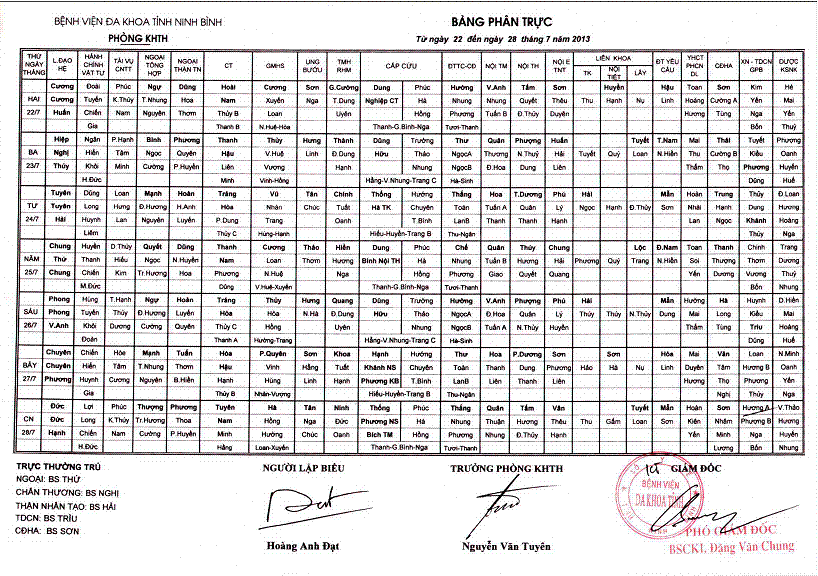 BỆNH VIỆN ĐA KHOA TỈNH NINH BÌNH
PHÒNG KHTH
BẢNG PHÂN TRỰC
Từ ngày 22 đến ngày 28 tháng 7 năm 2013
THỨ NGÀY THÁNG L.ĐẠO HỆ HÀNH CHÍNH VẬT TƯ TÀI VỤ CNTT NGOẠI TỔNG HỢP NGOẠI THẬN TN CT GMHS UNG BƯỚU TMH RHM CẤP CỨU ĐTTC-CĐ NỘI TM NỘI TH NỘI E TNT LIÊN KHOA TK NỘI TIẾT LÂY ĐT YÊU CẦU YHCT PHCN DL CĐHA XN - TDCN GPB DƯỢC KSNK
Cương Đoái Phúc Ngự Dũng Hoài Cương Sơn G.Cường Dung Phúc Hường V.Anh Tấm Sơn Huyền Hậu Toan Sơn Kim Hè
HAI Cương Tuyến K.Thủy T.Nhung Hoa Nam Xuyên Nga T.Dung Nghiệp CT Hà Nhung Nhung Quyết Thêu Thu Hạnh Nụ Linh Hoàng Cường A Yến Mai
22/7 Huấn Chiến Nam Nguyên Thơm Thủy B Loan Uyên Hồng Phương Tuấn B Đ.Thủy Duyên Hương Tùng Nga Yến
Gia Thanh B N.Huệ-Hòa Thanh-G.Bình-Nga Tươi-Thanh Bốn Thuỷ
Hiệp Ngân P.Hạnh Bình Phương Thanh Thủy Hưng Thành Dũng Trường Thu Quân Phượng Huấn Tuyết T.Nam Mai Thái Tuyết Phương
BA Nghị Hiền Tâm Ngọc Quyên Hậu V.Huệ Linh Đ.Dung Hữu Thảo NgọcA Thương N.Thuỷ Hải Tuyết Quý Loan N.Hiền Thu Cường B Kiều Oanh
23/7 Thủy Khôi Minh Cường P.Huyền Liên Vương Hạnh Nhung NgọcB Đ.Hoa Dung Liên Thắm Thọ Phương Huyền
H.Đức Minh Vinh-Hồng Hằng-V.Nhung-Trang C Hà-Sinh Dũng Huế
Tuyên Dũng Loan Mạnh Hoàn Tráng Vũ Tân Chính Thống Hường Thu Hoa T.Dương Phú Hải Mẫn Hoàn Trung Thủy Đ.Loan
TƯ Tuyên Long Hưng Đ.Hương H.Anh Hòa Nhàn Chúc Tuất Hà TK Chuyên Toàn Tuấn A Quân Lý Ngọc Hạnh Đ.Thủy Sơn Nhài Hạnh Dung Hương
24/7 Hải Huynh Lan Nguyên Luyến P.Dung Trang Oanh T.Bình LanB Thanh Thanh Hạnh Lan Ngọc Khánh Hoàng
Liêm Thủy C Hùng-Hạnh Hiếu-Huyền-Trang B Thu-Ngân Thủy Nga
Chung Huyền D.Thủy Quyết Dũng Thanh Cương Thảo Hiền Dung Phúc Chế Quân Thủy Chung Lộc Đ.Nam Toan Thanh Chinh Trang
NĂM Thứ Thanh Hiếu Ngọc N.Huyền Nam Loan Thơm Hương Bình Nội TH Hà Nhung Tuấn B Hương Hải Phượng Quý Trang N.Hiền Soi Thượng Thơm Dương
25/7 Chung Chiến Kim Tr.Hương Hoa Phương N.Huệ Nga Hồng Phương Giao Quyết Quang Yến Dương Vượng Thuỷ
M.Đức Dũng V.Huệ-Xuyên Thanh-G.Bình-Nga Tươi-Thanh Bốn Nhung
Phong Hùng T.Hạnh Ngự Hoàn Tráng Thủy Hưng Quang Dũng Trường Hường V.Anh Phượng Phú Hải Mẫn Hường Hà Huynh D.Hiền
SÁU Phong Tuyến Thủy Đ.Hương Luyến Hòa Hòa N.Hà Đ.Dung Hữu Thảo NgọcA Đ.Hoa Quân Lý Thủy Thủy N.Thủy Dung Mai Long Kiều Mai
26/7 V.Anh Khôi Dương Cường Quyên Thủy C Hồng Uyên Nhung NgọcB Tuấn A N.Thủy Huyền Thắm Tùng Triu Hoàng
Đoàn Thanh A Hường-Trang Hằng-V.Nhung-Trang C Hà-Sinh Dũng Huế
Chuyên Chiến Hòe Mạnh Tuấn Hòa P.Quyên Sơn Khoa Hạnh Hường Thư Hoa P.Dương Sơn Sơn Hòa Mai Vân Loan N.Minh
BẢY Chuyên Hiền Tâm T.Nhung Thơm Hậu Vinh Hằng Tuất Khánh NS Chuyên Toàn Thanh Dung Phương Hảo Hà Nụ Linh Duyên Tâm Hương B Oanh
27/7 Phương Huynh Cường Nguyên B.Hiền Hạnh Hùng Linh Hạnh Phương KB T.Bình LanB Liên Thanh Liên Hương Thọ Phương Yến
Gia Thủy B Nhân-Vượng Hiếu-Huyền-Trang B Thu-Ngân Nghị Thủy Nga
Đức Lợi Phúc Thượng Phương Tuyên Hà Tân Ninh Thống Phúc Thắng Quân Tấm Vân Tuyết Mẫn Hoàn Sơn Hương A V.Thảo
CN Đức Long K.Thủy Tr.Hương Thoa Nam Hồng Nga Đức Phương NS Hà Nhung Thuận Hương Thêu Thu Gấm Loan Sơn Kiên Nhâm Phương B Hương
28/7 Hạnh Chiến Nam Cường P.Huyền Minh Hường Chúc Oanh Bích TM Hồng Phương Nhung Đ.Thủy Hạnh Yến Minh Nga Huyền
H.Đức Hằng Loan-Xuyến Thanh-G.Bình-Nga Tươi-Thanh Lương Bốn Nhung
TRỰC THƯỜNG TRÚ
NGOẠI: BS THỨ
CHẤN THƯƠNG: BS NGHỊ
THẬN NHÂN TẠO: BS HẢI
TDCN: BS TRÌU
CĐHA: BS SƠN
NGƯỜI LẬP BIỂU
Hoàng Anh Đạt
TRƯỞNG PHÒNG KHTH
Nguyễn Văn Tuyên
GIÁM ĐỐC
BỆNH VIỆN
ĐA KHOA TỈNH
PHÓ GIÁM ĐỐC
BSCKI. Đặng Văn Chung